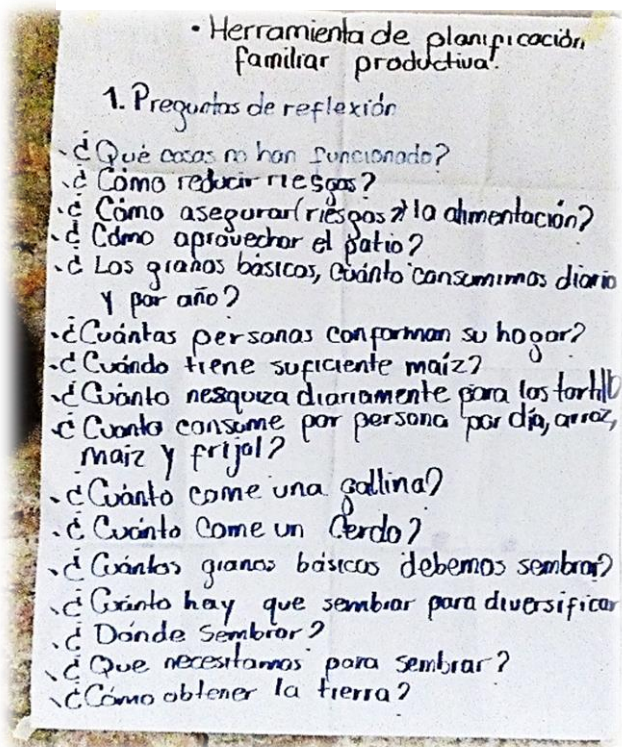 • Herramienta de planificación
familiar productiva.
1. Preguntas de reflexión
• ¿Qué cosas no han funcionado?
• ¿Cómo reducir riesgos?
• ¿Cómo asegurar (riesgos) la alimentación?
• ¿Cómo aprovechar el patio?
• ¿Los granos básicos, cuánto consumimos diario
y por año?
• ¿Cuántas personas conforman su hogar?
• ¿Cuándo tiene suficiente maíz?
• ¿Cuánto nesquiza diariamente para las
¿Cuanto consume por persona por día, arroz,
maíz y frijol?
• ¿Cuánto come una gallina?
• ¿Cuánto Come un Cerdo?
• ¿Cuántos granos básicos debemos sembrar?
• ¿Cuánto hay que sembrar para diversificar
• ¿Dónde Sembrar?
• ¿Que necesitamos para sembrar?
• ¿Cómo obtener la tierra?